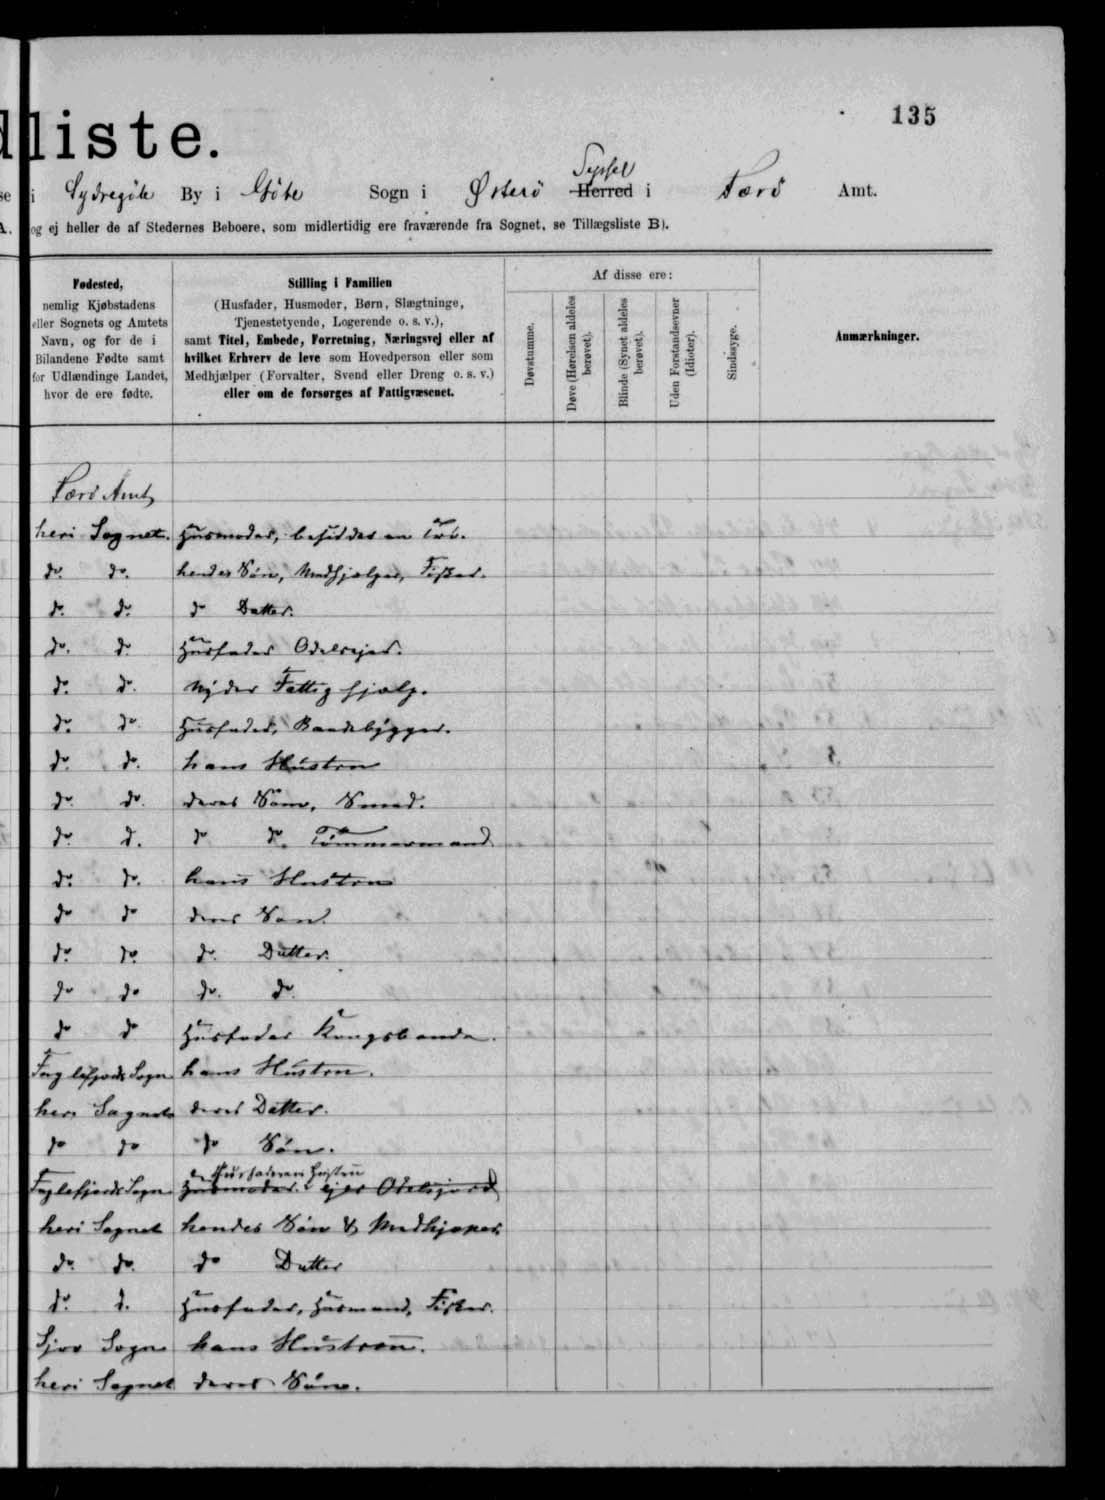 135
dliste.
se i Sydregøte By i Gøte Sogn i Østerö Syssel Herred i Færö Amt.
A. og ej heller de af Stedernes Beboere, som midlertidig ere fraværende fra Sognet, se Tillægsliste B).
Fødested,
nemlig Kjøbstadens
eller Sognets og Amtets
Navn, og for de i
Bilandene Fødte samt
for Udlændinge Landet,
hvor de ere fødte.
Stilling i Familien
(Husfader, Husmoder, Børn, Slægtninge,
Tjenestetyende, Logerende o. s. v.),
samt Titel, Embede, Forretning, Næringsvej eller af
hvilket Erhverv de leve som Hovedperson eller som
Medhjælper (Forvalter, Svend eller Dreng o. s. v.)
eller om de forsørges af Fattigvæsenet.
Af disse ere:
Døvstumme.
Døve (Hørelsen aldeles
berøvet).
Blinde (Synet aldeles
berøvet).
Uden Forstandsevner
(Idioter).
Sindssyge.
Anmærkninger.
Færö Amt,
heri Sognet. Husmoder, besidder en
do. do. hendes Søn, Medhjælper, Fisker.
do. do. do Datter.
do. do. Husfader Odelsejer.
do. do. Nyder Fattighjælp.
do. do. Husfader, Baadebygger.
do. do. hans Hustru
do. do. deres Søn, Smed.
do. d. do do. Tömmermand.
do. do. hans Hustru
do do deres Søn.
do. do. do. Datter.
do do do. do.
do do Husfader Kongsbonde.
Fuglefjords Sogn hans Hustru.
heri Sognet deres Datter.
do do do Søn.
Husfaderens Hustru
Fuglefjords Sogn Husmoder. ejer Odelsjord
heri Sognet hendes Søn & Medhjælper
do. do. do Datter
do. d. Husfader, Husmand, Fisker.
Sjov Sogn hans Hustru.
heri Sognet deres Søn.